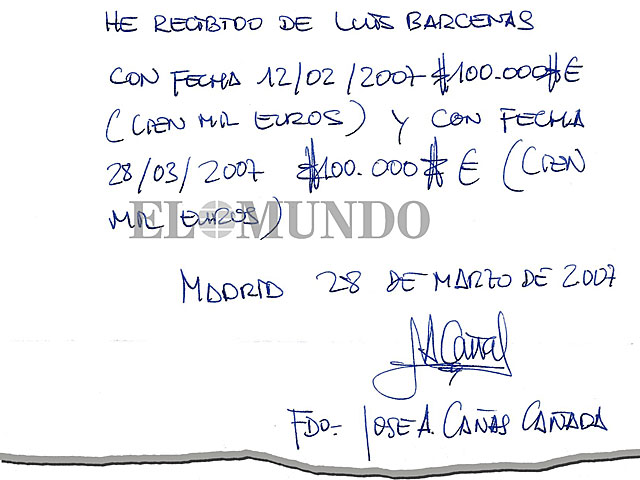 HE RECIBIDO DE LUIS BARCENAS
CON FECHA 12/02/2007 #100.000#€
(CIEN MIL EUROS) Y CON FECHA
28/03/2007 #100.000# € (CIEN
MIL EUROS)
EL MUNDO
MADRID 28 DE MARZO DE 2007
JA Cañas
FDO- JOSE A. CAÑAS CAÑADA